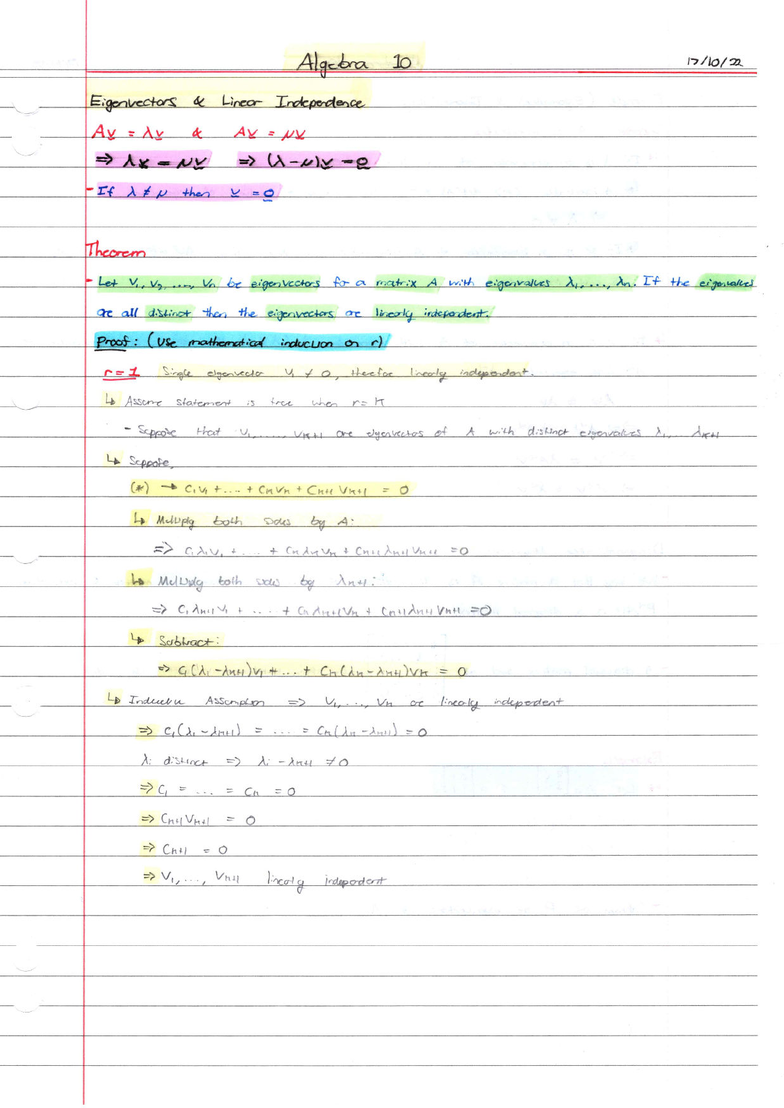 Algebra 10
17/10/22
Eigenvectors & Linear Independence
Av = λv & Av = μv
⇒ λv = μv ⇒ (λ-μ)v = 0
- If λ ≠ μ then v = 0
Theorem
- Let V₁, V₂, ...., Vn be eigenvectors for a matrix A with eigenvalues λ₁, ..., λn. If the eigenvalues
are all distinct then the eigenvectors are linearly independent.
Proof: (Use mathematical induction on r)
r=1 Single eigenvector V₁ ≠ 0, therefore linearly independent.
↳ Assume statement is true when r=K
- Suppose that V₁, ..., VK+1 are eigenvectors of A with distinct eigenvalues λ₁ ... λK+1
↳ Suppose,
(*) → C₁V₁ + ... + CKVK + CK+1 VK+1 = 0
↳ Multiply both sides by A:
⇒ C₁λ₁V₁ + .... + CKλKVK + CK+1λK+1VK+1 = 0
↳ Multiply both sides by λK+1:
⇒ C₁λK+1V₁ + .... + CKλK+1VK + CK+1λK+1VK+1 = 0
↳ Subtract:
⇒ C₁(λ₁-λK+1)V₁ + ... + CK(λK-λK+1)VK = 0
↳ Inductive Assumption ⇒ V₁, ..., VK are linearly independent
⇒ C₁(λ₁-λK+1) = .... = CK(λK-λK+1) = 0
λi distinct ⇒ λi - λK+1 ≠ 0
⇒ C₁ = ... = CK = 0
⇒ CK+1VK+1 = 0
⇒ CK+1 = 0
⇒ V₁, ..., VK+1 linearly independent